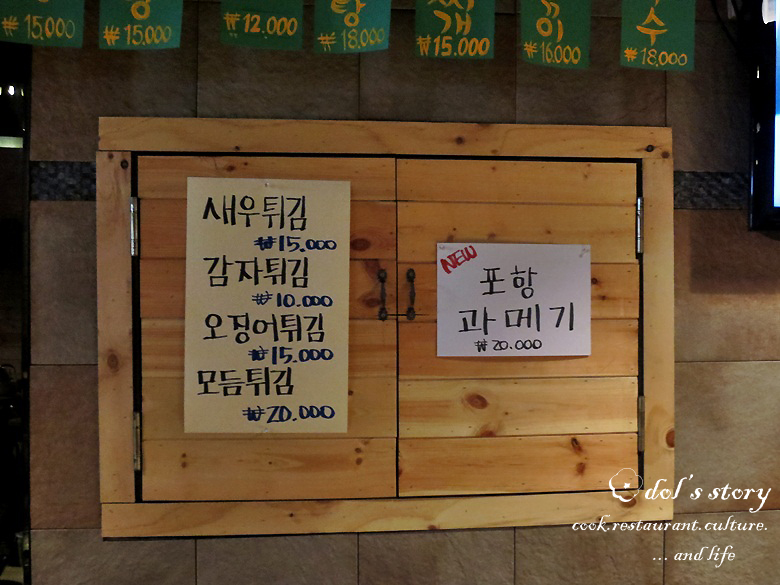 ₩15,000
₩15,000
₩12.000
탕
₩18,000
찌개
₩15.000
₩16.000
수
₩18,000
새우튀김
₩15.000
감자튀김
₩10.000
오징어튀김
₩15.000
모듬튀김
₩20.000
NEW
포항
과메기
₩20.000
dol's story
cook.restaurant.culture.
... and life